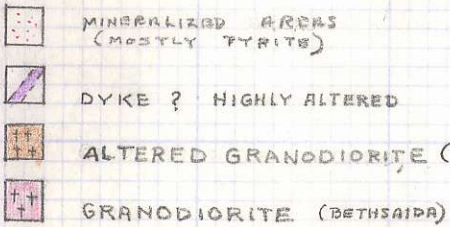 MINERALIZED AREAS
(MOSTLY PYRITE)
DYKE ? HIGHLY ALTERED
ALTERED GRANODIORITE (
GRANODIORITE (BETHSAIDA)